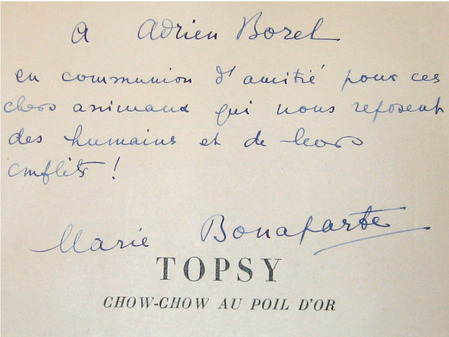 A Adrien Borel
en communion d'amitié pour ces
chers animaux qui nous reposent
des humains et de leurs
conflits !
Marie Bonaparte
TOPSY
CHOW-CHOW AU POIL D'OR